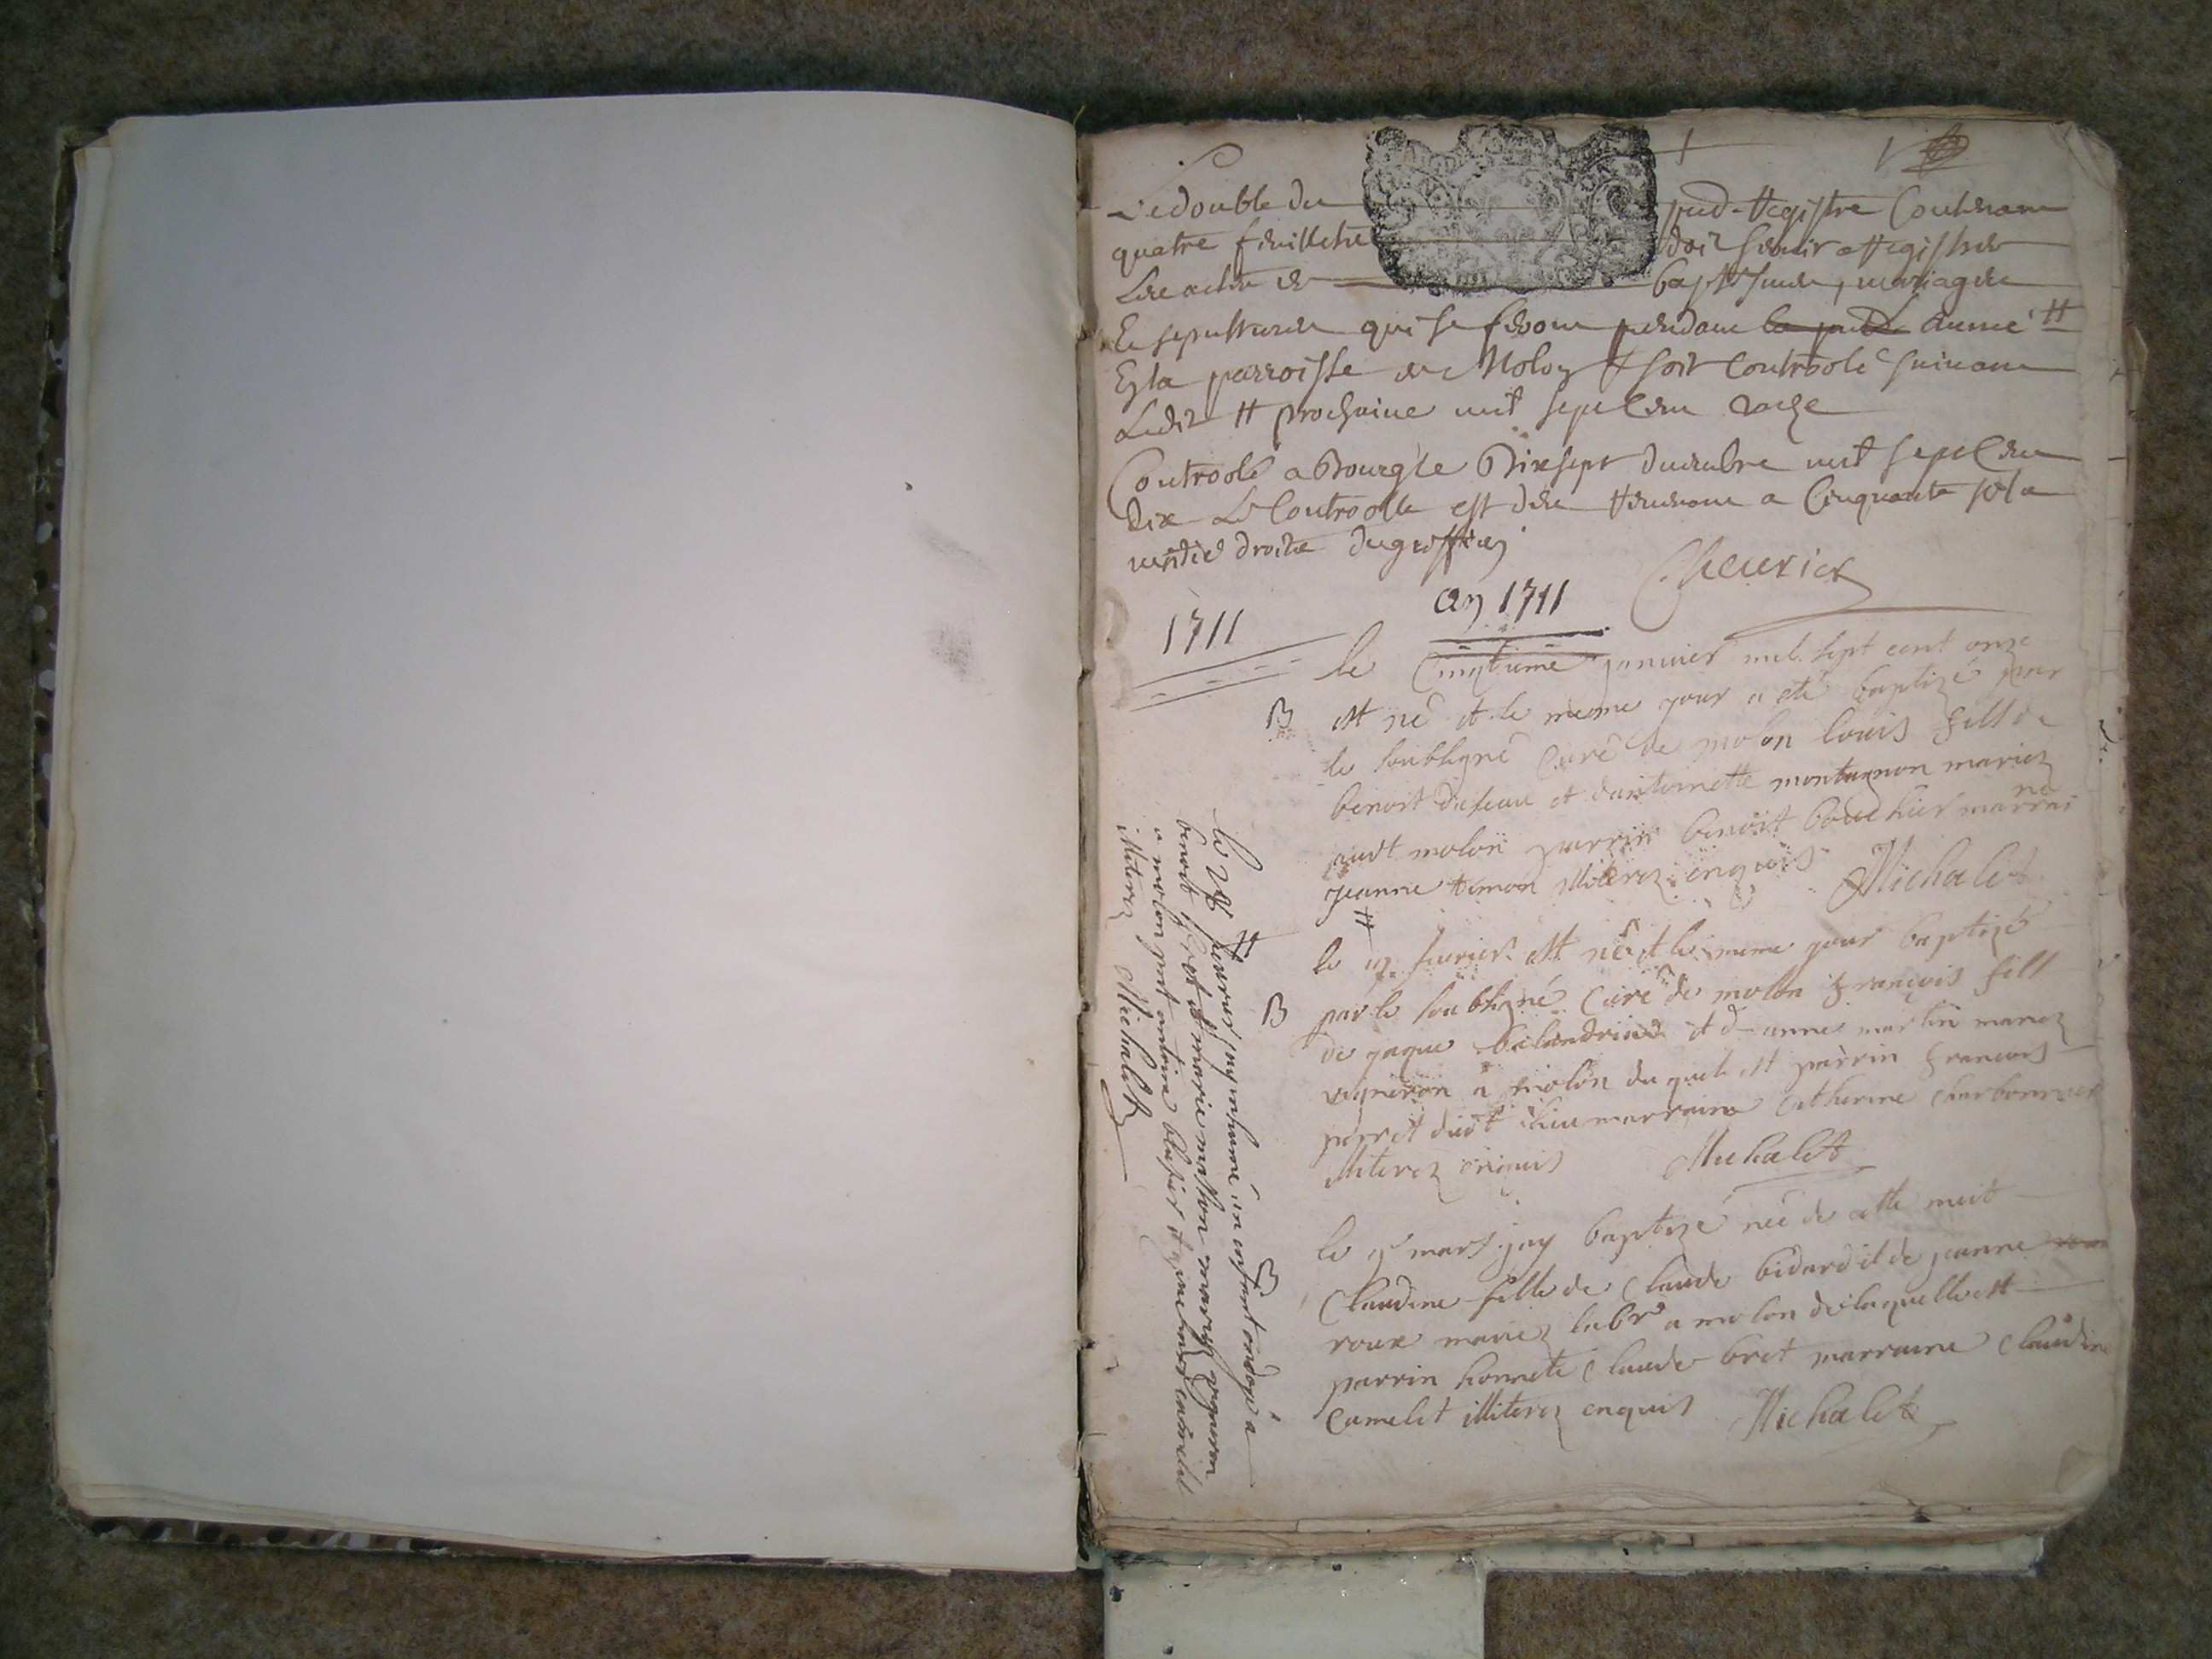 Le double du pnt Registre Contenant
quatre feuillets doit servir a Registrer
Les actes de baptesmes, mariages
Et sepultures qui se feront pendant la pnte année #
En la parroisse de Molon & soit Controolé suivant
Ledit # prochaine mil sept cens onze
Controolé a Bourg le Dix sept decembre mil sept cens
dix Le Controolle est de revenant a Cinquante sols
moitié droits du greffier
Cheurier
1711
an 1711
le Cinqtieme janvier mil sept cent onze
B est né et le meme jour a eté baptizé par
le soubsigné Curé de molon louis fils de
benoit dufeau et dantoinette montagnon mariez
audt molon parrin benoist bouchier marraine
jeanne timon illiterez enquis Michalet
#
le 17 feurier est né et le meme jour baptizé
B par le soubsigné Curé de molon françois fils
de jaque balandrin et d anne martin mariez
vigneron a molon duquel est parrin francois
perret dudt lieu marraine Catherine charbonnier
illiterez enquis Michalet
le 9e mars jay baptizé née de cette nuit
Claudine fille de Claude bidard et de jeanne
roux mariez labr a molon de laquelle est
parrin honnete Claude bret marraine Claudine
Camelet illiterez enquis Michalet
# B
le feurier jay inhumé un enfant ondoyé a
benoit et marie masson mariez vigneron
a molon pnt antoine et
illiterez Michalet